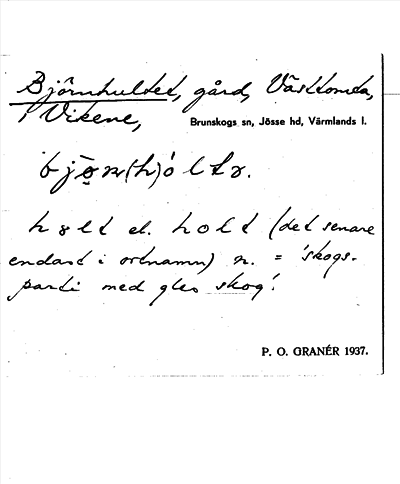 Björnhultet, gård, Västtomta,
i Vikene,
Brunskogs sn, Jösse hd, Värmlands l.
bjö̱n(h)ólt
hølt el. holt (det senare
endast i ortnamn) n. = 'skogs-
parti med gles skog'.
P. O. GRANÉR 1937.